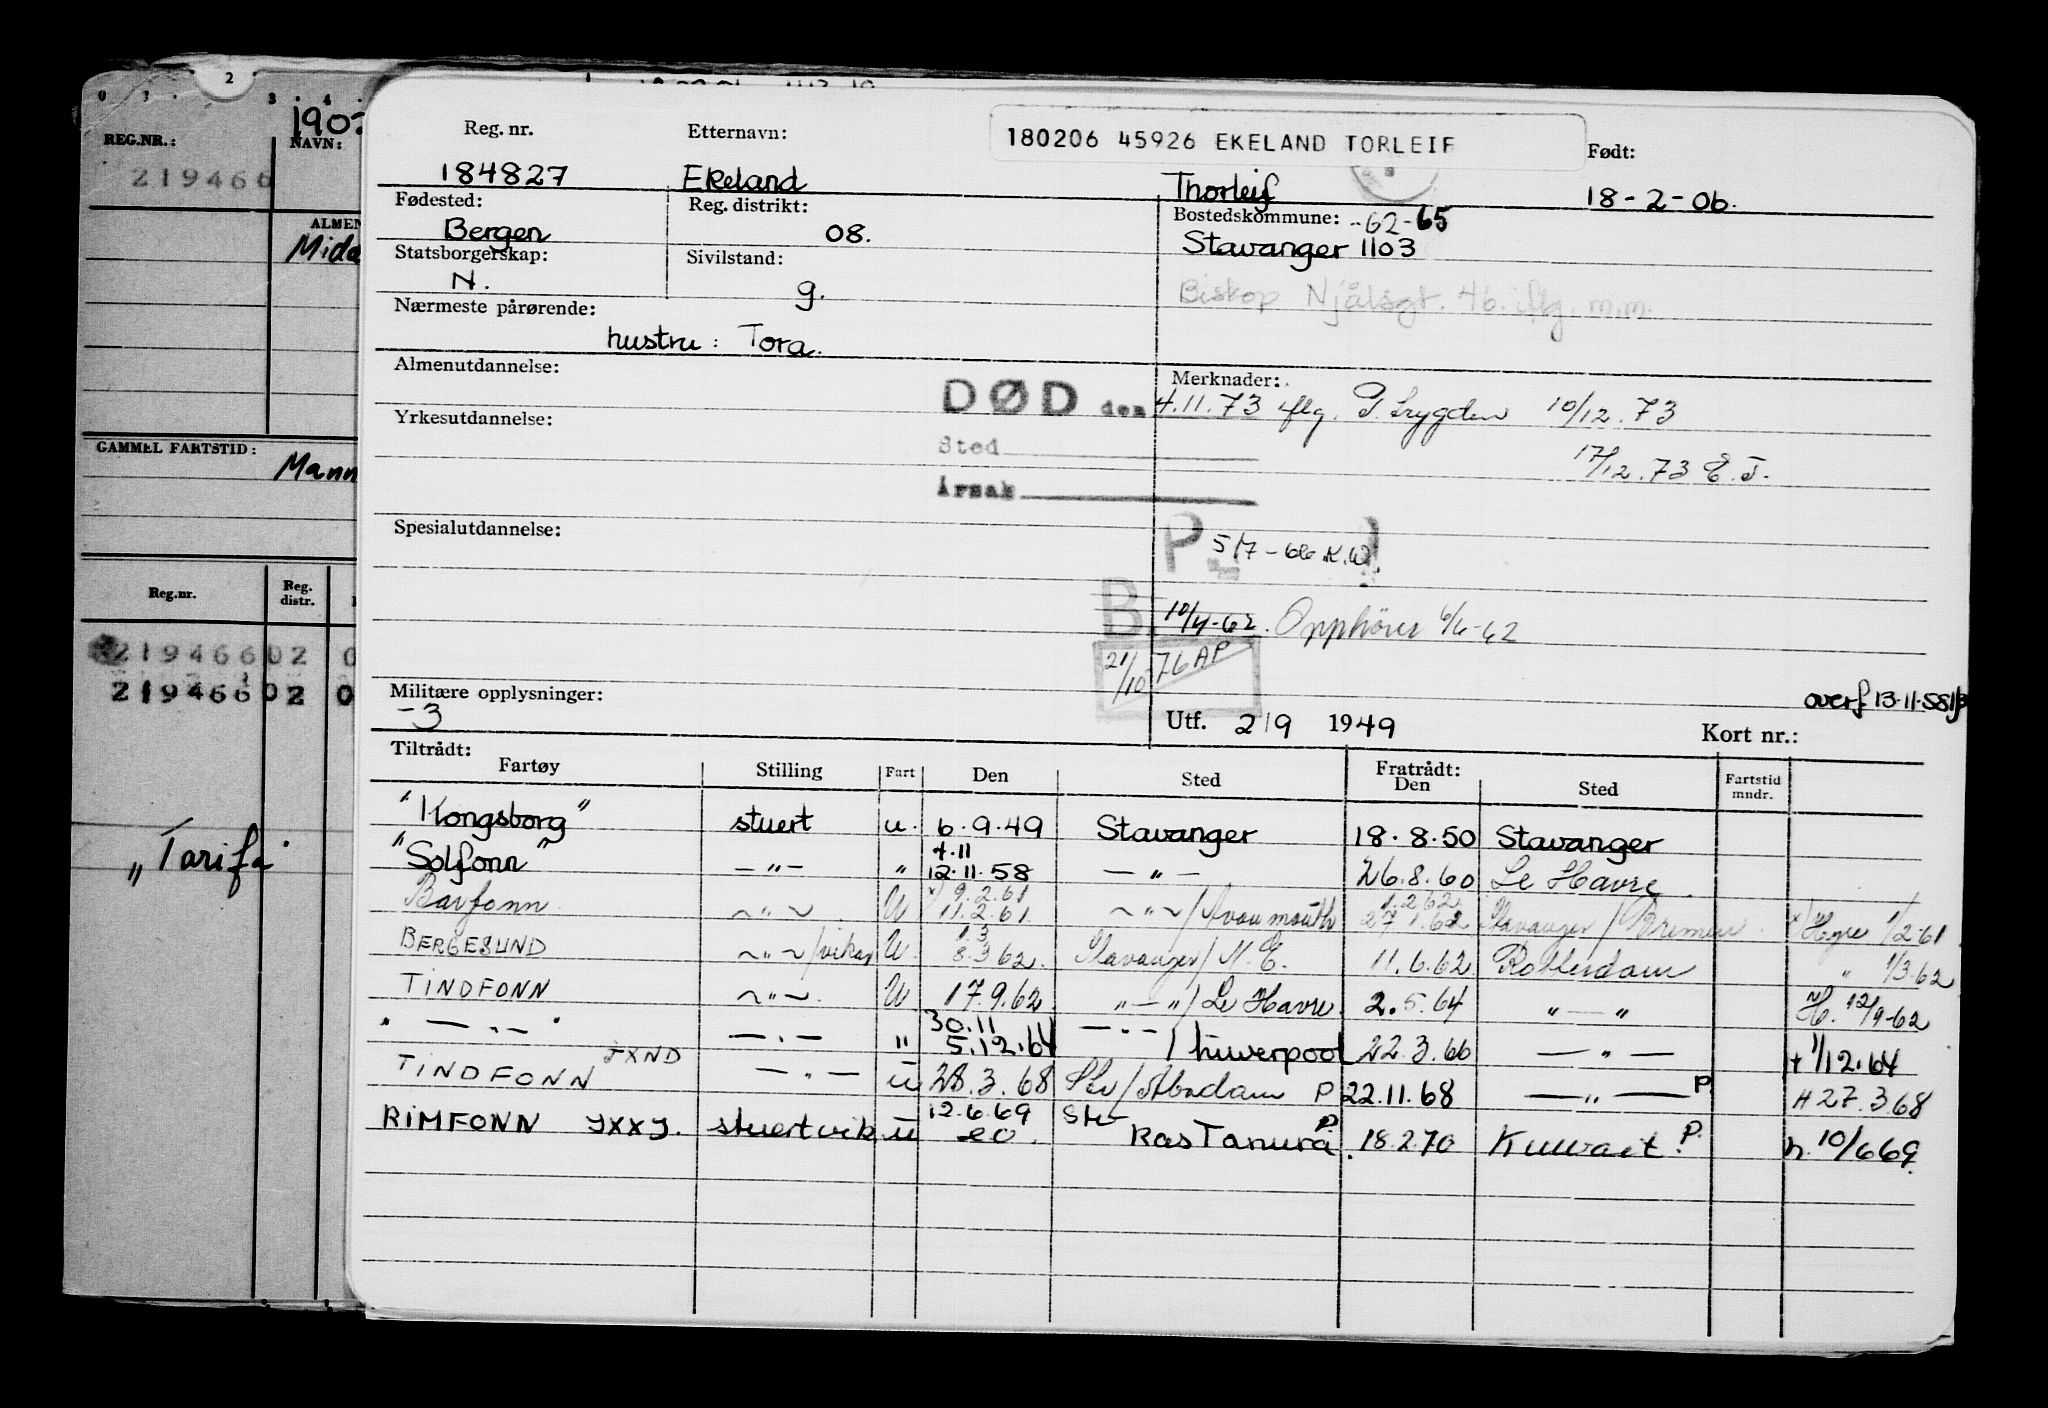 2
0 3 . 3 . 4 .
1902
REG.NR.: NAVN:
219466
ALMEN
Mida
GAMMEL FARTSTID:
Mann
Reg.nr. Reg. distr.
219466 02 0
219466 02 0
„Tarifa"
Reg. nr. Etternavn: 180206 45926 EKELAND TORLEIF Født:
184827 Ekeland Thorleif 18-2-06.
Fødested: Reg. distrikt: Bostedskommune: -62-65
Bergen 08. Stavanger 1103
Statsborgerskap: Sivilstand:
N. g. Biskop Njålsgt. 46. iflg. m.m.
Nærmeste pårørende:
hustru: Tora.
Almenutdannelse: Merknader:
DØD den 4.11.73 iflg. P. trygden 10/12.73
Yrkesutdannelse:
Sted 17/12.73 E.T.
Årsak
Spesialutdannelse: P 5/7-66 K.W.
B. 10/4-62. Opphører 6/6-62
21/10 76 AP
Militære opplysninger: overf 13.11.58
-3 Utf. 2/9 1949 Kort nr.:
Tiltrådt: Fratrådt:
Fartøy Stilling Fart Den Sted Den Sted Fartstid mndr.
"Kongsborg" stuert u. 6.9.49 Stavanger 18.8.50 Stavanger
4.11
"Solfonn" — " — " 12.11.58 — " — 26.8.60 Le Havre
x) 9.2.61 1.2.62
Barfonn ~ " ~ U 11.2.61 ~ " ~ / Avonmouth 27.1.62 Stavanger / Bremen x) Hyre 1/2.61
1.3
BERGESUND ~ " ~ /vikar U. 8.3.62. Stavanger / N.E. 11.6.62 Rotterdam " 1/3.62
TINDFONN ~ " ~ U 17.9.62 " — " / Le Havre 2.5.64 " — " H. 12/9-62
30.11
" — " — " — " — " 5.12.64 — " — / Liverpool 22.3.66 — " — + 1/12.64
TINDFONN JXND — " — u 28.3.68 Stv / Abadan P 22.11.68 — " — P H 27.3.68
12.6.69 Stv
RIMFONN JXXJ. stuert vik u 20. Ras Tanura P. 18.2.70 Kuwait P. h. 10/6 69.